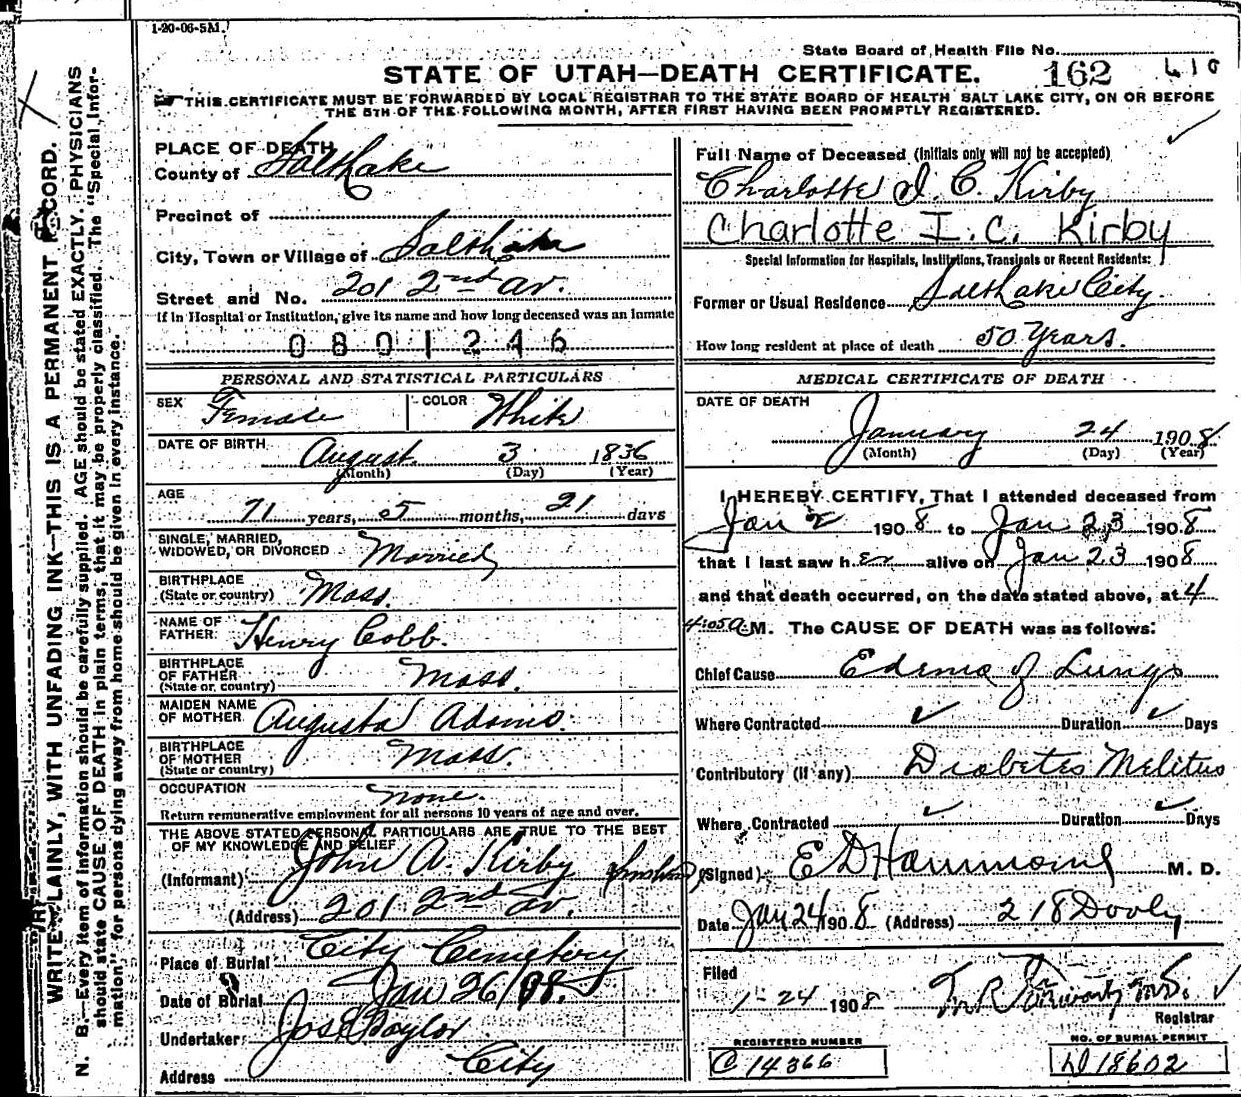 1-20-06-5M.
State Board of Health File No.
STATE OF UTAH—DEATH CERTIFICATE. 162 610
THIS CERTIFICATE MUST BE FORWARDED BY LOCAL REGISTRAR TO THE STATE BOARD OF HEALTH SALT LAKE CITY, ON OR BEFORE
THE 5TH OF THE FOLLOWING MONTH, AFTER FIRST HAVING BEEN PROMPTLY REGISTERED.
WRITE PLAINLY, WITH UNFADING INK—THIS IS A PERMANENT RECORD.
N. B.—Every item of information should be carefully supplied. AGE should be stated EXACTLY. PHYSICIANS
should state CAUSE OF DEATH in plain terms, that it may be properly classified. The "Special Infor-
mation" for persons dying away from home should be given in every instance.
PLACE OF DEATH
County of Salt Lake
Precinct of
City, Town or Village of Salt Lake
Street and No. 201 2nd av.
If in Hospital or Institution, give its name and how long deceased was an inmate
0801246
PERSONAL AND STATISTICAL PARTICULARS
SEX Female COLOR White
DATE OF BIRTH August 3 1836
(Month) (Day) (Year)
AGE 71 years, 5 months, 21 days
SINGLE, MARRIED,
WIDOWED, OR DIVORCED Married
BIRTHPLACE
(State or country) Mass.
NAME OF
FATHER: Henry Cobb.
BIRTHPLACE
OF FATHER
(State or country) Mass.
MAIDEN NAME
OF MOTHER Augusta Adams.
BIRTHPLACE
OF MOTHER
(State or country) Mass.
OCCUPATION none.
Return remunerative employment for all persons 10 years of age and over.
THE ABOVE STATED PERSONAL PARTICULARS ARE TRUE TO THE BEST
OF MY KNOWLEDGE AND BELIEF
(Informant) John A. Kirby
(Address) 201 2nd av.
Place of Burial City Cemetery
Date of Burial Jan 26/08.
Undertaker Jos E Taylor
Address City
Full Name of Deceased (Initials only will not be accepted)
Charlotte I. C. Kirby
Charlotte I. C. Kirby
Special Information for Hospitals, Institutions, Transients or Recent Residents:
Former or Usual Residence Salt Lake City
How long resident at place of death 50 Years.
MEDICAL CERTIFICATE OF DEATH
DATE OF DEATH
January 24 1908
(Month) (Day) (Year)
I HEREBY CERTIFY, That I attended deceased from
Jan 2 1908 to Jan 23, 1908
that I last saw her alive on Jan 23 1908
and that death occurred, on the date stated above, at 4
4:05 a. M. The CAUSE OF DEATH was as follows:
Chief Cause Edema of Lungs
Where Contracted Duration Days
Contributory (If any) Diabetes Melitus
Where Contracted Duration Days
(Signed) E D Hammond M. D.
Date Jan 24 1908 (Address) 218 Dooly
Filed
1-24 1908
Registrar
REGISTERED NUMBER
C 14366
NO. OF BURIAL PERMIT
D 18602